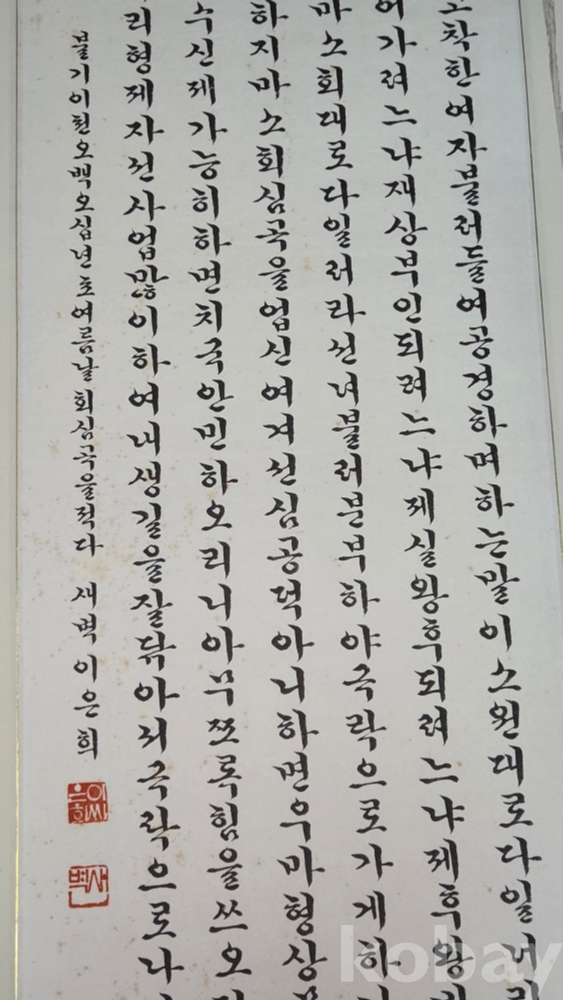 착한여자불러들여공경하며하는말이소원대로다일너
어가려느냐재상부인되려느냐제실왕후되려느냐제후왕
마소회대로다일러라선녀불러분부하야극락으로가게하
하지마소회심곡을업신여겨선심공덕아니하면우마형상
수신제가능히하면치국안민하오리니아무쪼록힘을쓰오
리형제자선사업많이하여내생길을잘닦아저극락으로나
불기이천오백오십년초여름날회심곡을적다 새벽 이은희
이씨은희
새벽
kobay